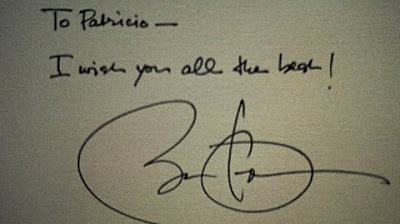 To Patricio —
I wish you all the best!